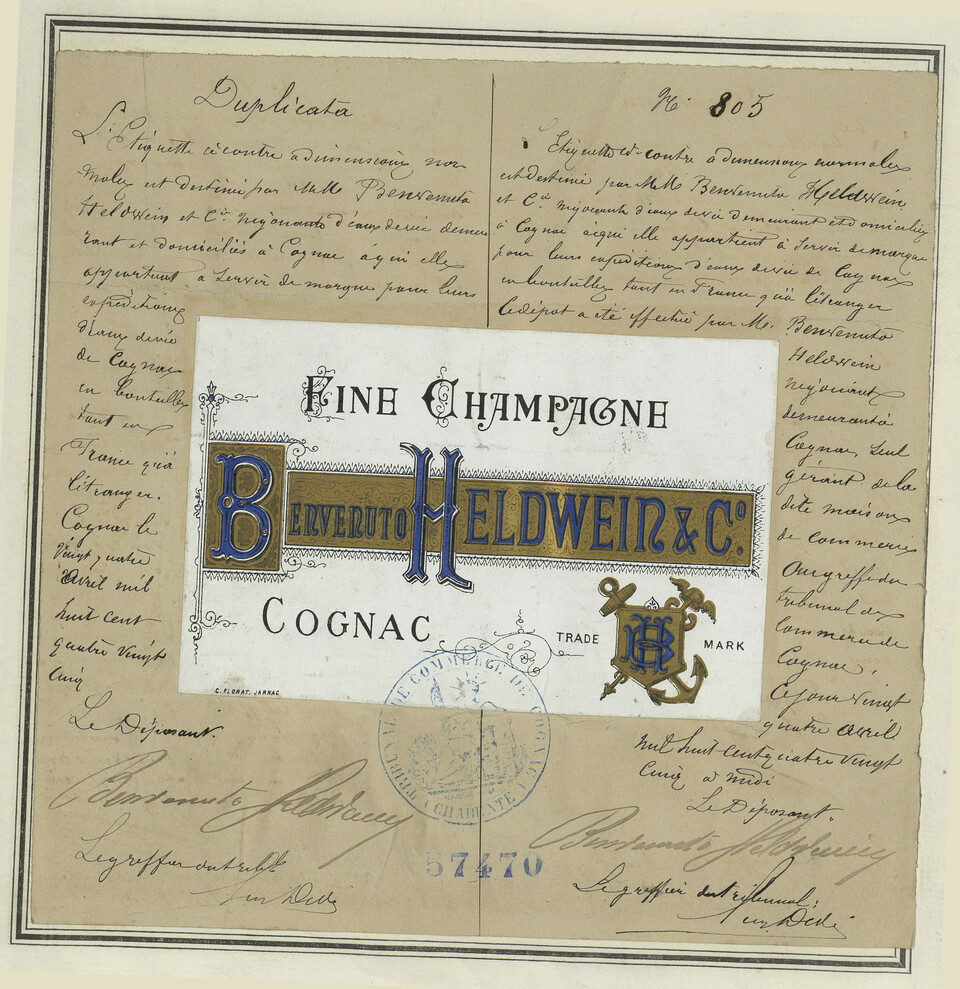 Duplicata
L'Etiquette ci contre a dimensions nor
males est destinée par M.M. Benvenuto
Heldwein et Cie négociants d'eaux de vie demeu
rant et domiciliés à Cognac à qui elle
appartient à servir de marque pour leurs
expéditions
d'eaux de vie
de Cognac
en bouteilles
tant en
France qu'à
l'étranger.
Cognac le
vingt quatre
avril mil
huit cent
quatre vingt
cinq
Le Déposant.
Benvenuto Heldwein
Le greffier du trib
No. 805
L'Etiquette ci-contre à dimensions normales
est destinée par M.M. Benvenuto Heldwein
et Cie négociants d'eaux de vie demeurant et domiciliés
à Cognac à qui elle appartient à servir de marque
pour leurs expéditions d'eaux de vie de Cognac
en bouteilles tant en France qu'à l'étranger
Le dépôt a été effectué par M. Benvenuto
Heldwein
négociant
demeurant à
Cognac, Seul
gérant de la
dite maison
de commerce
Au greffe du
tribunal de
Commerce de
Cognac,
Ce jour vingt
quatre avril
mil huit cent quatre vingt
cinq à midi
Le Déposant.
Benvenuto Heldwein
Le greffier du tribunal:
FINE CHAMPAGNE
BENVENUTO HELDWEIN & Co.
COGNAC
TRADE MARK
BH
C. FLORAT, JARNAC
TRIBUNAL DE COMMERCE DE COGNAC (CHARENTE)
57470